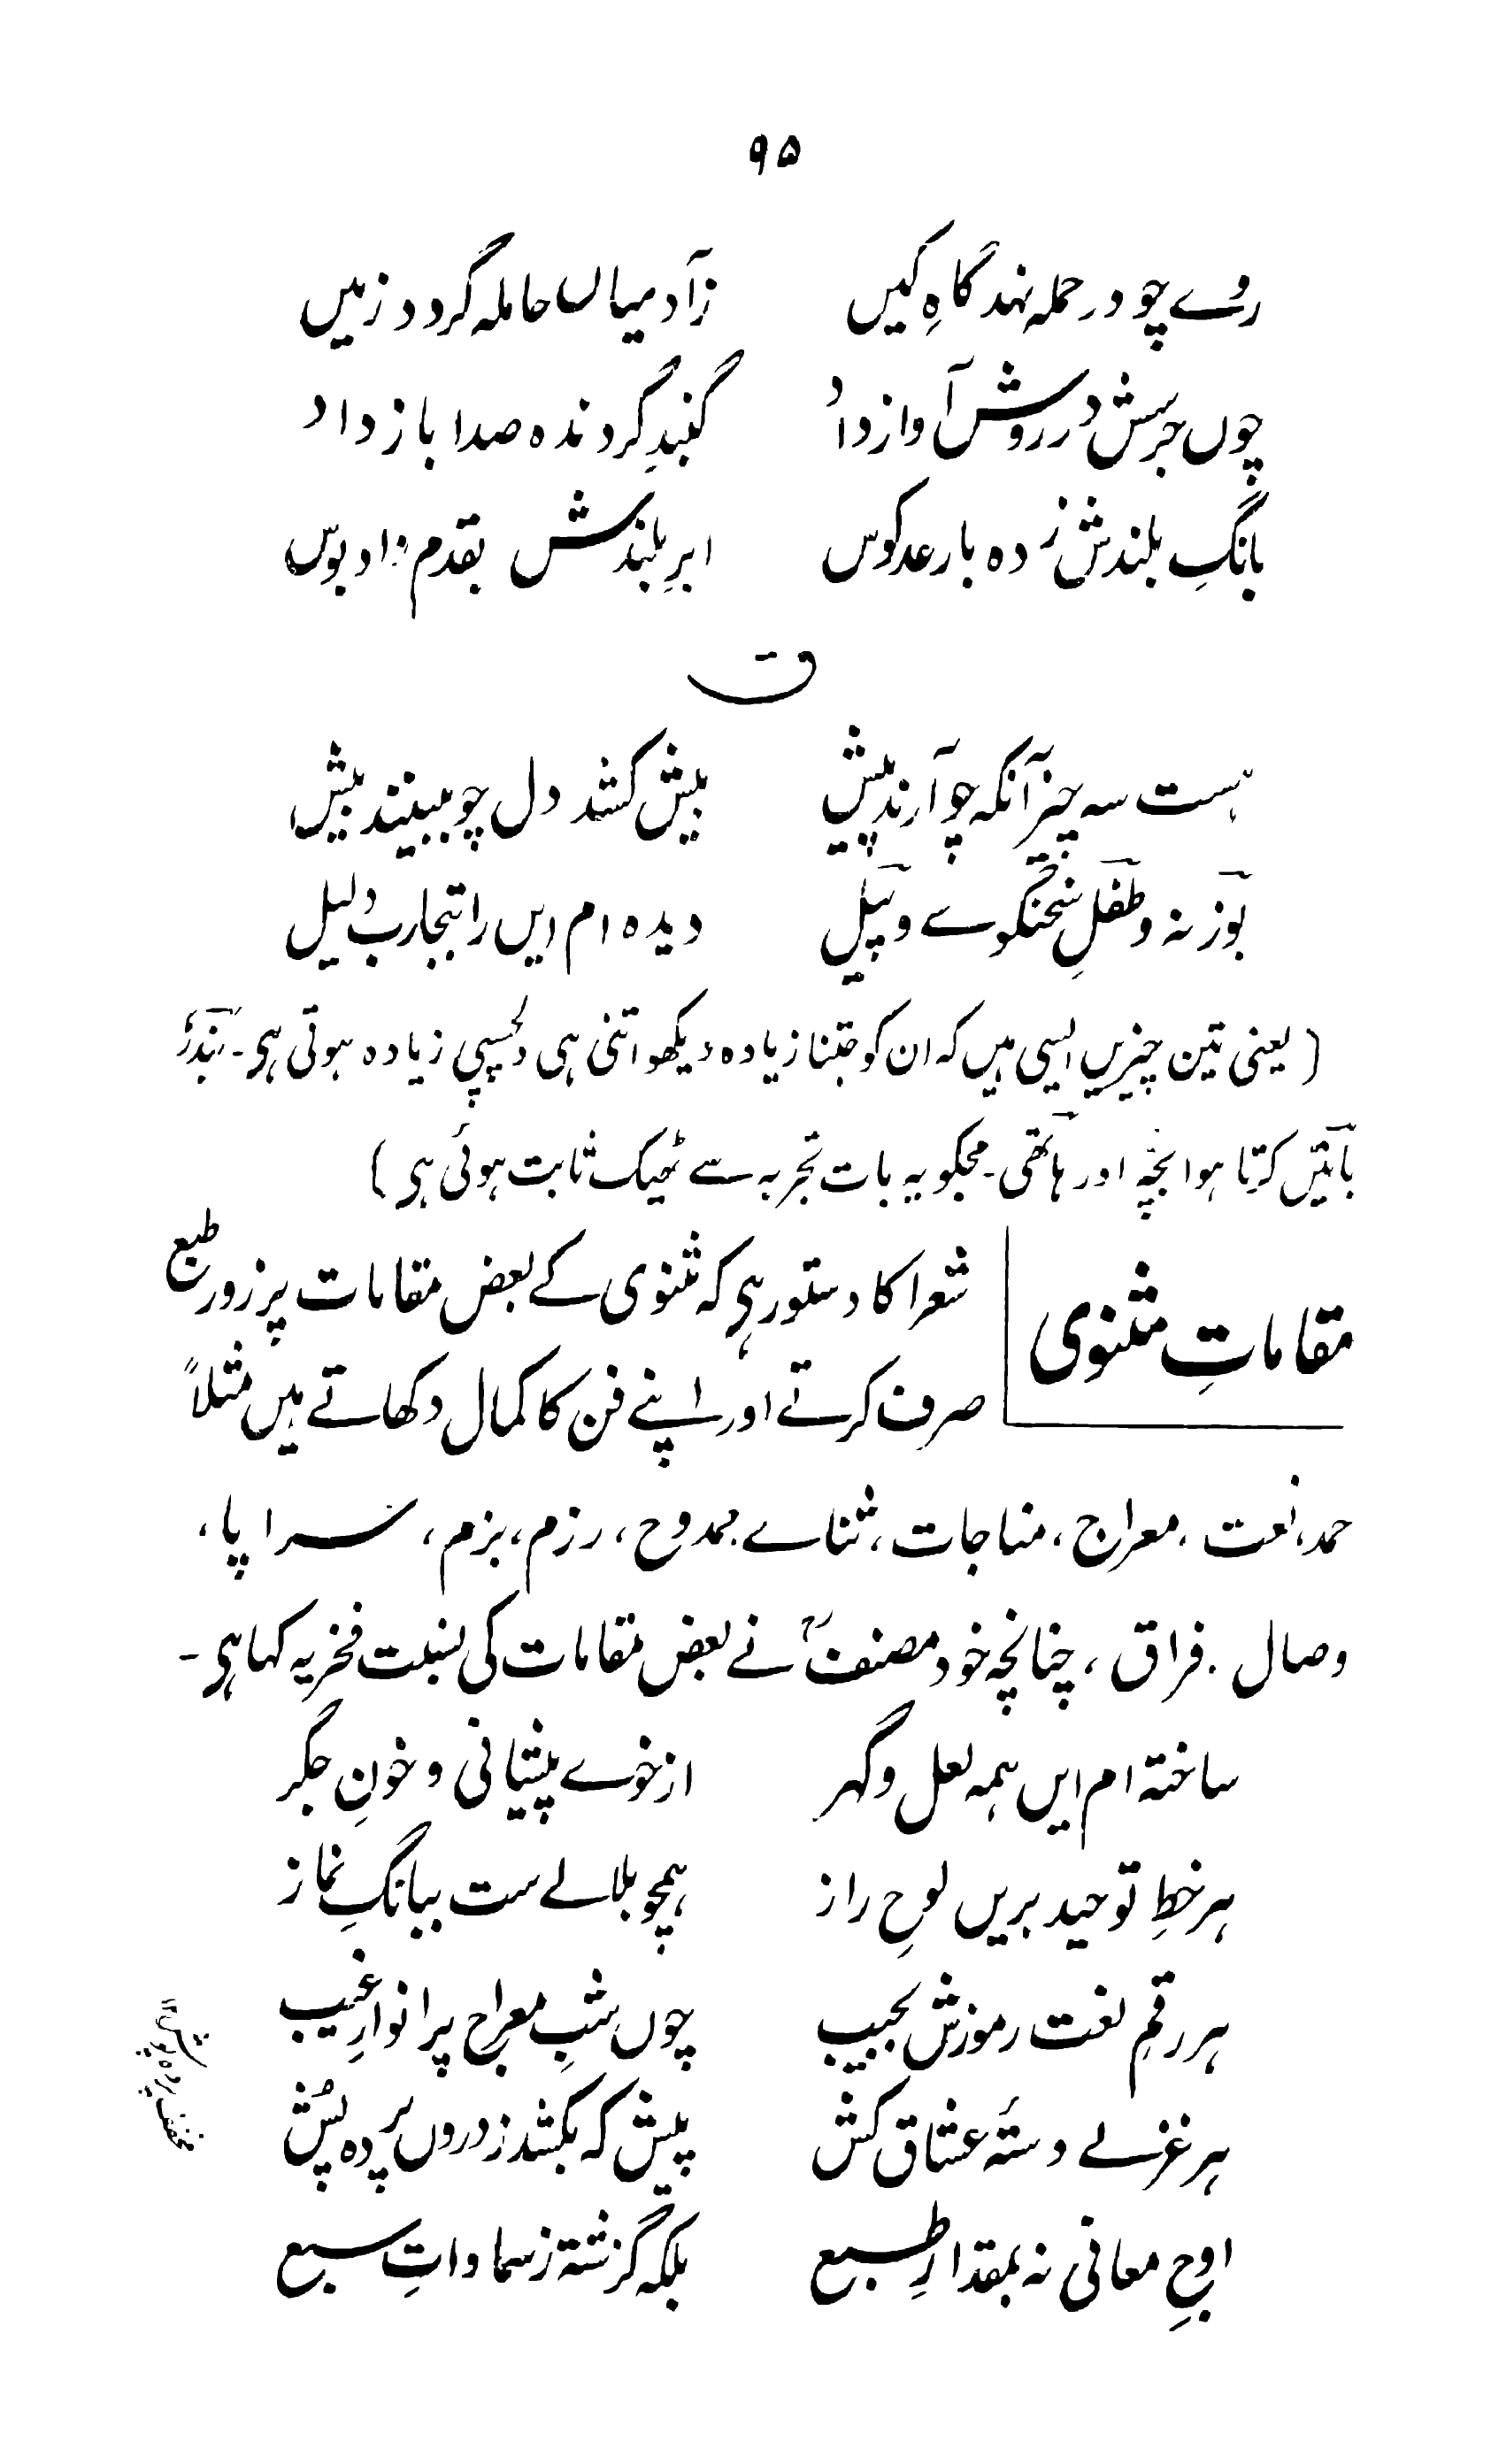 ۹۵
روے چو در حملہ نہد گاہِ کیں زآدمیاں حاملہ گردد زمیں
چوں جرسش در روش آواز داد گنبدِ گردندہ صدا باز داد
بانگِ بلندش زدہ بارعد کوس ابرِ بلندش بقدم داد بوس
ق
ہست سہ چیز آنکہ چو آرند پیش بیش کشد دل چو ببینند بیش
بوزنہ و طفلِ سخنگوے و پیل دیدہ ام ایں را بتجارب دلیل
(یعنی تین چیزیں ایسی ہیں کہ ان کو جتنا زیادہ دیکھو اتنی ہی دلچسپی زیادہ ہوتی ہی۔ بندر،
باتیں کرتا ہوا بچہ اور ہاتھی۔ مجکو یہ بات تجربہ سے ٹھیک ثابت ہوئی ہی)
مقاماتِ مثنوی
شعرا کا دستور ہی کہ مثنوی کے بعض مقامات پر زور طبع
صرف کرتے اور اپنے فن کا کمال دکھاتے ہیں مثلاً
حمد، نعت، معراج، مناجات، ثناے ممدوح، رزم، بزم، سراپا،
وصال. فراق، چنانچہ خود مصنفؒ نے بعض مقامات کی نسبت فخریہ کہا ہی۔
ساختہ ام ایں ہمہ لعل و گہر از خوے پیشانی و خونِ جگر
ہر خطِ توحید بریں لوحِ راز ہمچو بلالے ست ببانگِ نماز
ہر رقمِ نعت رموزش بجیب چوں شبِ معراج پر انوارِ غیب
ہر غزلے دستۂ عشاق کش پیش کہ بکشد ز دروں پردہ پُش
اوجِ معانی نہ بمقدارِ طبع بلکہ گزشتہ ز سماواتِ سبع